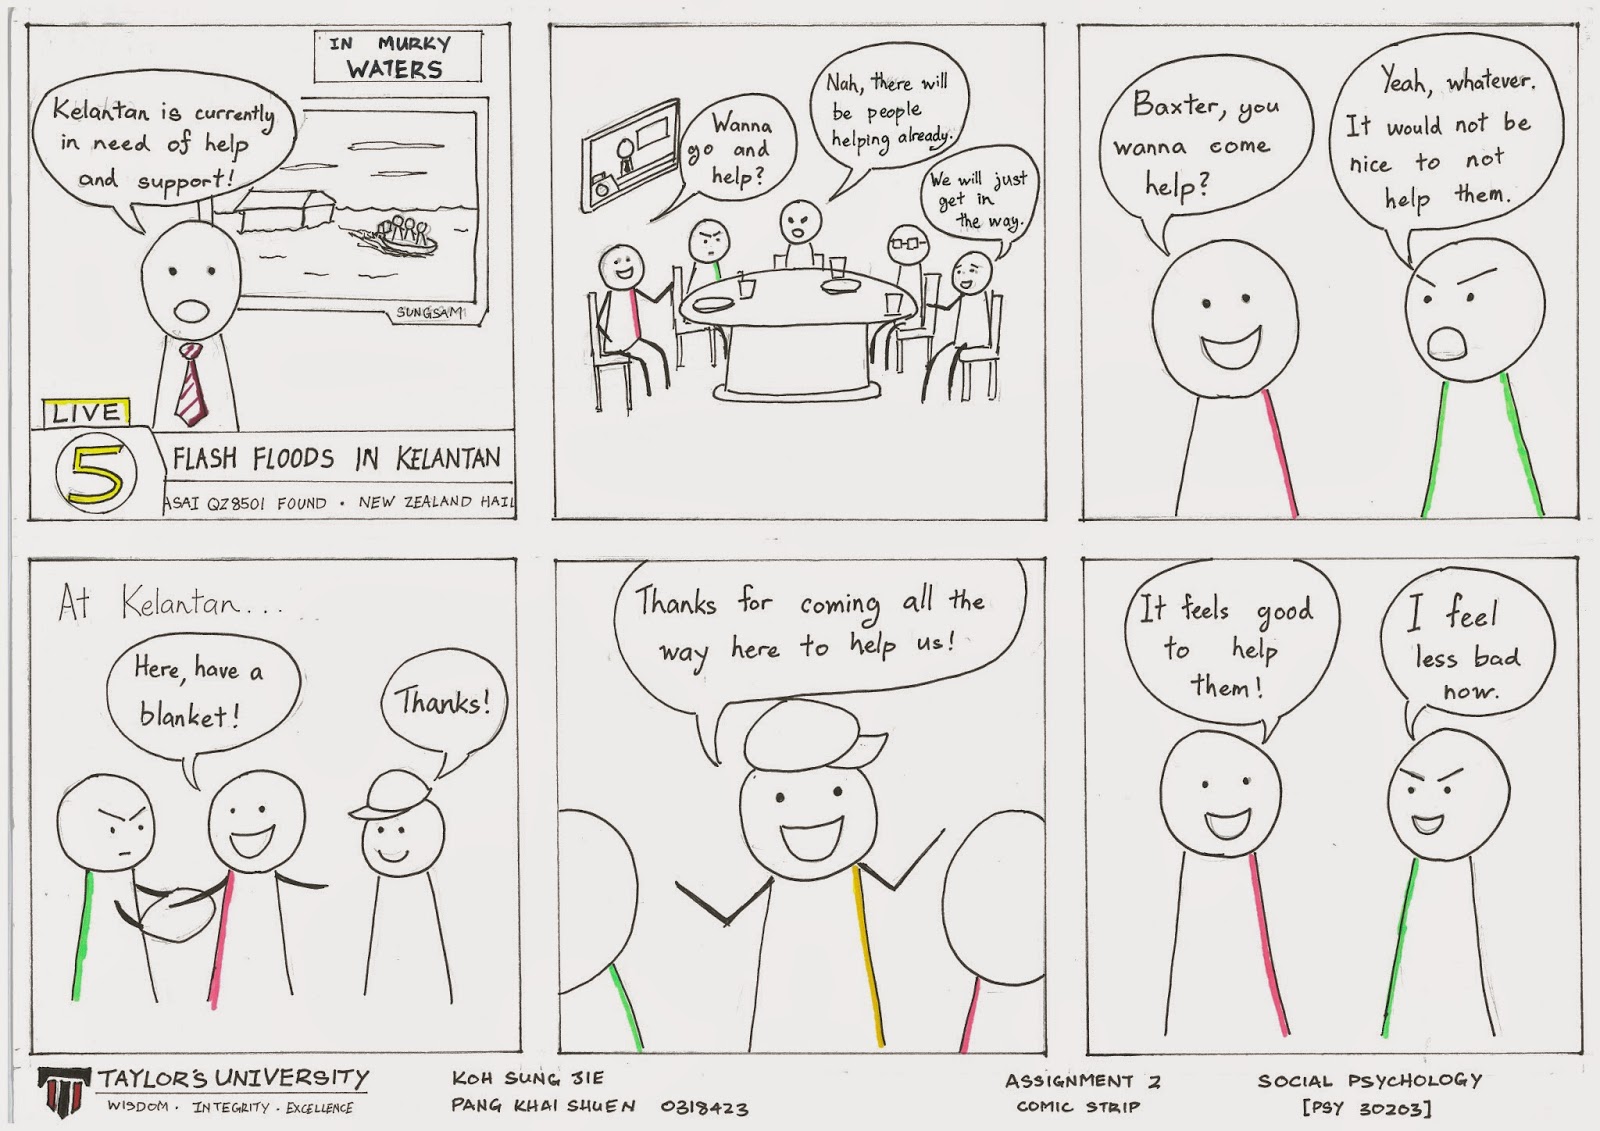 IN MURKY
WATERS
Kelantan is currently
in need of help
and support!
SUNGSAM
LIVE
5
FLASH FLOODS IN KELANTAN
ASAI QZ8501 FOUND · NEW ZEALAND HAIL
Wanna
go and
help?
Nah, there will
be people
helping already.
We will just
get in
the way.
Baxter, you
wanna come
help?
Yeah, whatever.
It would not be
nice to not
help them.
At Kelantan...
Here, have a
blanket!
Thanks!
Thanks for coming all the
way here to help us!
It feels good
to help
them!
I feel
less bad
now.
TAYLOR'S UNIVERSITY
WISDOM · INTEGRITY · EXCELLENCE
KOH SUNG JIE
PANG KHAI SHUEN 0318423
ASSIGNMENT 2
COMIC STRIP
SOCIAL PSYCHOLOGY
[PSY 30203]